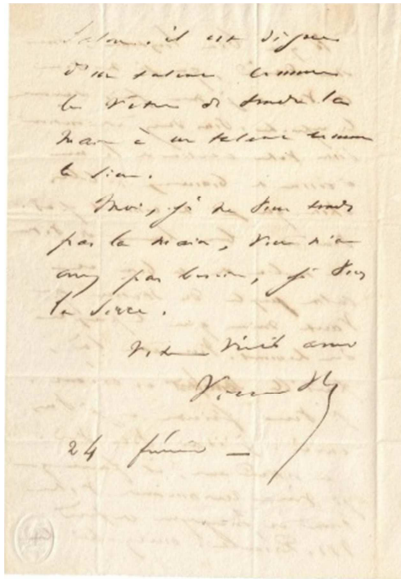 Salon. il est digne
d'un talent comme
le vôtre de tendre la
main à un talent comme
le sien.
Moi, je ne vous tends
pas la main, vous n'en
avez pas besoin, je vous
la serre.
Votre vieil ami
Victor H
24 février —